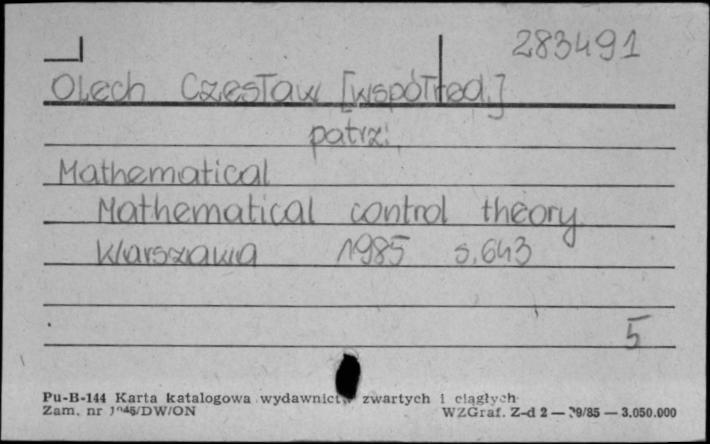 283491
Olech Czesław [współred.]
patrz:
Mathematical
Mathematical control theory
Warszawa 1985 s.643
5
Pu-B-144 Karta katalogowa wydawnictw zwartych i ciągłych
Zam. nr /DW/ON WZGraf. Z-d 2 — 29/85 — 3.050.000